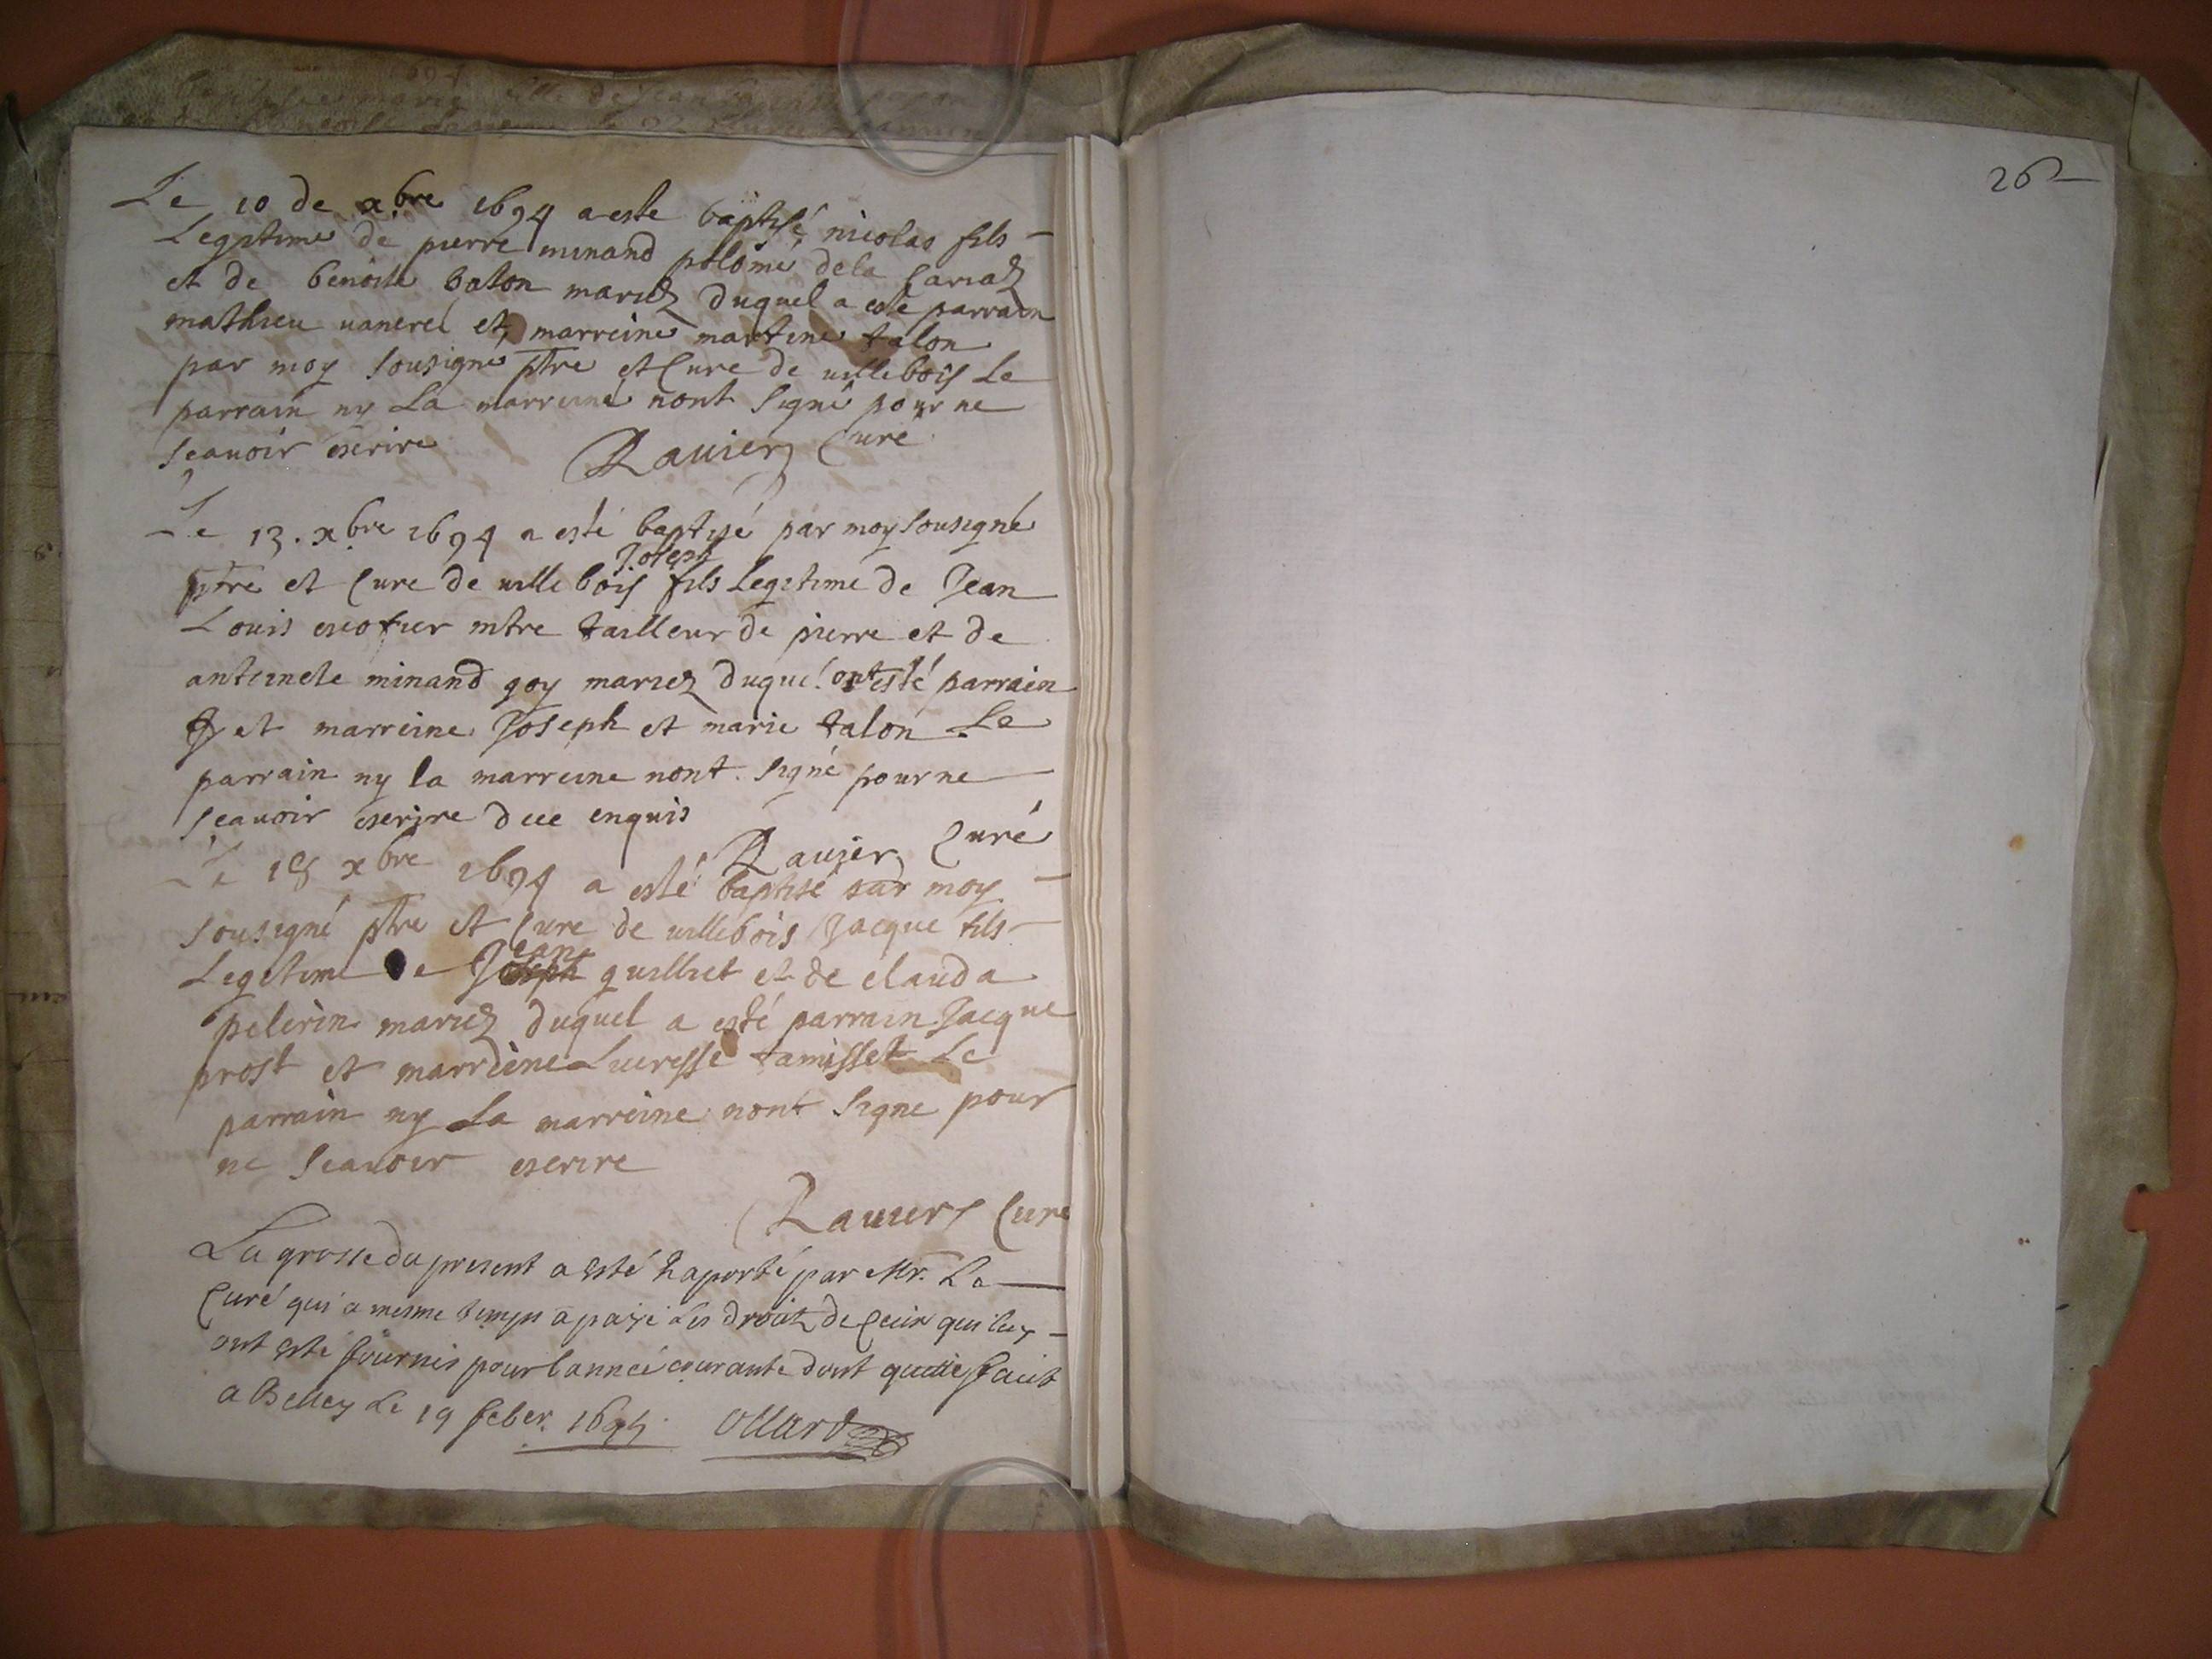 Le 10 de xbre 1694 a este baptisé nicolas fils
Legitime de pierre minand polome de la Cariaz
et de benoite baton mariez duquel a este parrain
mathieu vanerel et marreine martine talon
par moy sousigne ptre et Cure de villebois Le
parrain ny La marreine nont signé pour ne
scavoir escrire Ravier Curé
Le 13. xbre 1694 a esté baptisé par moy sousigné
Joseph
ptre et Cure de villebois fils Legitime de Jean
Louis escofier mtre tailleur de pierre et de
anteinete minand goy mariez duquel ont esté parrain
et marreine Joseph et marie talon Le
parrain ny la marreine nont signé pour ne
scavoir escrire de ce enquis
Ravier Curé
Le 18 xbre 1694 a esté baptisé par moy
sousigné ptre et Cure de villebois Jacque fils
Legitime de Jean guilliet et de clauda
pelerin mariez duquel a esté parrain Jacque
prost et marreine Lucresse tamisset Le
parrain ny La marreine nont signe pour
ne scavoir escrire
Ravier Cure
La grosse du present a esté raporté par Mr. Le
Curé qui a mesme temps a payé les droitz de ceux qui luy
ont esté fournis pour lannée courante dont quitte fait
a Belley Le 19 feber. 1695 Ollard
262